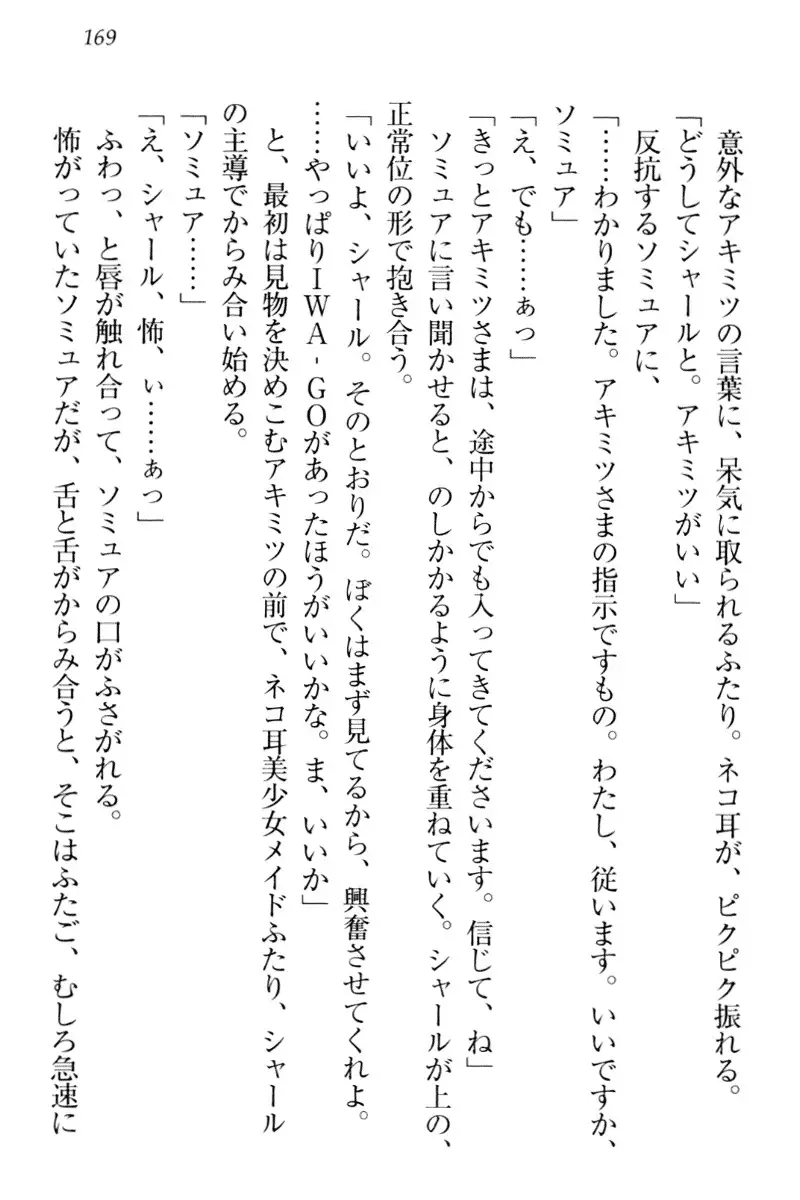 169
意外なアキミツの言葉に、呆気に取られるふたり。ネコ耳が、ピクピク振れる。
「どうしてシャールと。アキミツがいい」
反抗するソミュアに、
「……わかりました。アキミツさまの指示ですもの。わたし、従います。いいですか、
ソミュア」
「え、でも……ぁっ」
「きっとアキミツさまは、途中からでも入ってきてくださいます。信じて、ね」
ソミュアに言い聞かせると、のしかかるように身体を重ねていく。シャールが上の、
正常位の形で抱き合う。
「いいよ、シャール。そのとおりだ。ぼくはまず見てるから、興奮させてくれよ。
……やっぱりIWA-GOがあったほうがいいかな。ま、いいか」
と、最初は見物を決めこむアキミツの前で、ネコ耳美少女メイドふたり、シャール
の主導でからみ合い始める。
「ソミュア……」
「え、シャール、怖、ぃ……ぁっ」
ふわっ、と唇が触れ合って、ソミュアの口がふさがれる。
怖がっていたソミュアだが、舌と舌がからみ合うと、そこはふたご、むしろ急速に